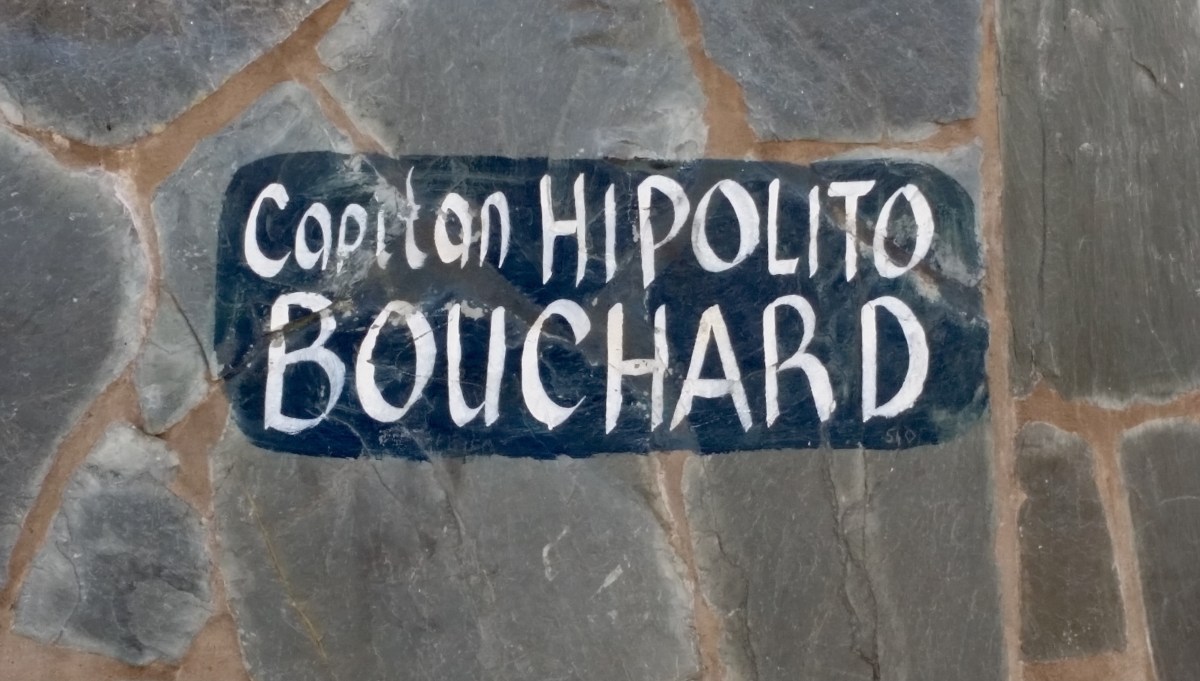 Capitan HIPOLITO
BOUCHARD